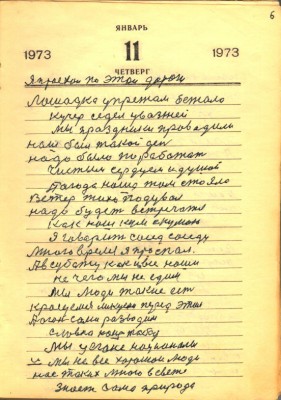 6
ЯНВАРЬ
1973 11 1973
ЧЕТВЕРГ
Я проехал по этой дороги
Лошадка упрежам бежало
Кучер седел уважней
Мы празники проводили
нам был такой ден
надо было поработат
Чистым сердцем и душой
Погода наша там стояло
Ветер тихо подувал
надо будет встречат
Как наш кум
Я говорит сосед соседу
Много время я проспал.
А в суботу как все наши
не чего мы не едим
Мы люди такие ест
Красуемся перед этим
сами разводим
Словно нашу
Мы начинали
Мы не все хорошом люди
нас таких много в свете
Знает сама природа